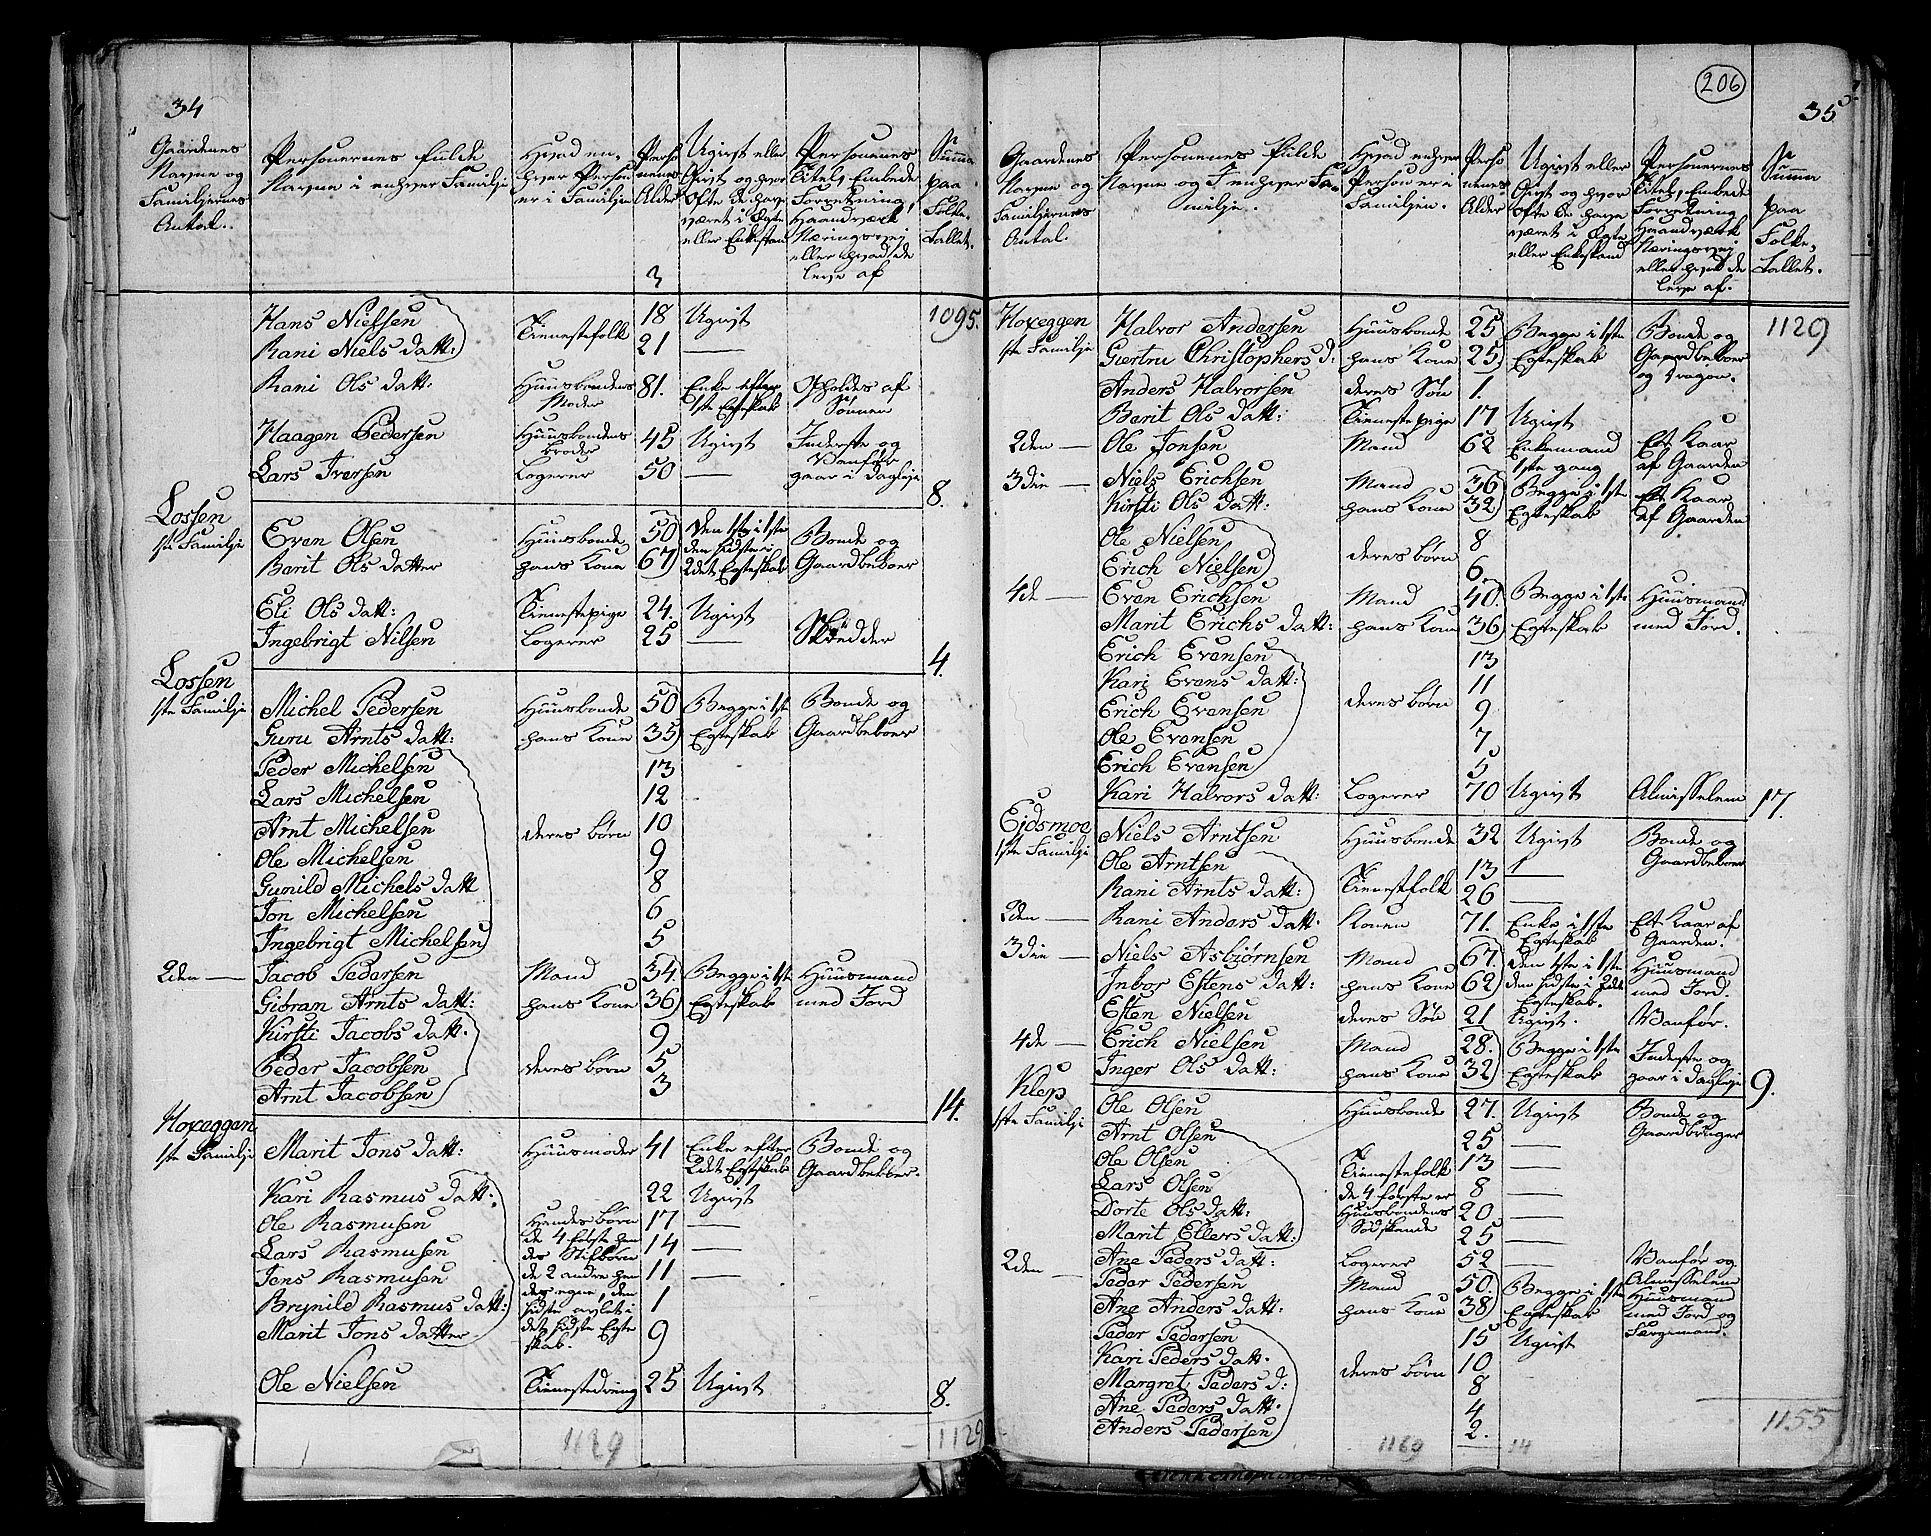 34
Gaardenes Navne og Familiernes Antal.
Personernes fulde Navne i enhver Familie
Hvad enhver Person er i Familien
Personernes Alder
Ugivt eller Givt og hvor ofte de have været i Ægte eller Enkestand
Personernes Titel, Embede Forretning, Haandværk Næringsvej eller hvad de leve af
Summa paa Folke-Tallet.
3
Hans Nielsen 18 Ugivt 1095.
Tienestefolk
Rani Niels Datt: 21 —
Rani Ols Datt: Huusbondens Moder 81. Enke efter 1ste Egteskab Opholdes af Sønnen
Haagen Pedersen Huusbondens broder 45 Ugivt Inderste og Vanfør
Lars Iversen Logerer 50 — gaar i Dagleje
8.
Lossen
1ste Familje
Even Olsen Huusbonde 50 Den 1ste i 1ste Bonde og
Berit Ols Datter hans Kone 67 den sidste i 2det Egteskab Gaardbeboer
Eli Ols Datt: Tienestepige 24. Ugivt
Ingebrigt Nilsen Logerer 25 — Skrædder
4.
Lossen
1ste Familje
Michel Pedersen Huusbonde 50 Begge i 1ste Bonde og
Guru Arnts Datt: hans Kone 35 Egteskab Gaardbeboer
Peder Michelsen 13
Lars Michelsen 12
Arnt Michelsen deres børn 10
Ole Michelsen 9
Gunild Michels Datt 8
Jon Michelsen 6
Ingebrigt Michelsen 5
2den — Jacob Pedersen Mand 34 Begge i 1ste Huusmand
Gidran Arnts Datt: hans Kone 36 Egteskab med Jord
Kirsti Jacobs Datt. 9
Peder Jacobsen deres børn 5
Arnt Jacobsen 3
14.
Hoxeggen
1ste Familje
Marit Jons Datt: Huusmoder 41 Enke efter 2det Egteskab Bonde og Gaardbeboer.
Kari Rasmus Datt. 22 Ugivt
Ole Rasmusen Hendes børn 17 —
Lars Rasmusen de 4 første hendes Stifbørn 14 —
Jens Rasmusen de 2 andre hen 11 —
Brynild Rasmus Datt: des egne, den sidste avlet i 1
Marit Jons Datter det sidste Egteskab. 9
Ole Nielsen Tienestedreng 25 Ugivt
8.
1129
1129
206
35
Gaardenes Navne og Familiernes Antal.
Personernes fulde Navne og i enhver Familie.
Hvad enhver Person er i Familien.
Personernes Alder
Ugivt eller Givt og hvor ofte de have været i Ægte eller Enkestand
Personernes Titel, Embede Forretning Haandværk Næringsvej eller hvad de leve af.
Summa paa Folke-Tallet.
Hoxeggen
1ste Familje
Halvor Andersen Huusbonde 25 Begge i 1ste Bonde og 1129
Giertru Christophers d: hans Kone 25 Egteskab Gaardbeboer og Dragon.
Anders Halvorsen deres Søn 1.
Berit Ols Datt: Tienestepige 17 Ugivt
2den — Ole Jonsen Mand 62 Enkemand 1ste gang Et Kaar af Gaarden
3die — Niels Erichsen Mand 36 Begge i 1ste Et Kaar
Kirsti Ols Datt: hans Kone 32 Egteskab af Gaarden
Ole Nielsen 8
deres børn
Erich Nielsen 6
4de — Even Erichsen Mand 40. Begge i 1ste Huusmand
Marit Erichs Datt: hans Kone 36 Egteskab med Jord.
Erich Evensen 13
Kari Evens Datt: 11
Erich Evensen deres børn 9
Ole Evensen 7
Erich Evensen 5
Kari Halvors Datt: Logerer 70 Ugivt Almisselem
17.
Eidsmoe
1ste Familje
Niels Arntsen Huusbonde 32 Ugivt Bonde og Gaardbeboer
Ole Arntsen 13 —
Tienestfolk
Rani Arnts Datt: 26 —
2den — Rani Anders Datt. Konen 71. Enke i 1ste Egteskab Et Kaar af Gaarden.
3die — Niels Asbjørnsen Mand 67. den 1ste i 1ste Huusmand
Inbor Estens Datt: hans Kone 62 den sidste i 2det Egteskab. med Jord.
Esten Nielsen deres Søn 21 Ugivt. Vanfør.
4de — Erich Nielsen Mand 28. Begge i 1ste Inderste og
Inger Ols Datt: hans Kone 32 Egteskab gaar i Dagleje
9.
Klep
1ste Familje
Ole Olsen Huusbonde 27. Ugivt Bonde og Gaardbruger
Arnt Olsen 25 —
Ole Olsen Tienestefolk 13 —
Lars Olsen de 4 første er 8 —
Dorte Ols Datt: Huusbondens 20 —
Marit Ellers Datt: Sødskende 25 —
Ane Peders Datt: Logerer 52 — Vanfør og Almisselem
2den — Peder Pedersen Mand 50. Begge i 1ste Huusmand
Ane Anders Datt: hans Kone 38 Egteskab med Jord og
Peder Pedersen 15 Ugivt
Kari Peders Datt. deres børn 10
Margret Peders d: 8
Ane Peders Datt: 4
Anders Pedersen 2.
1155
1169 14